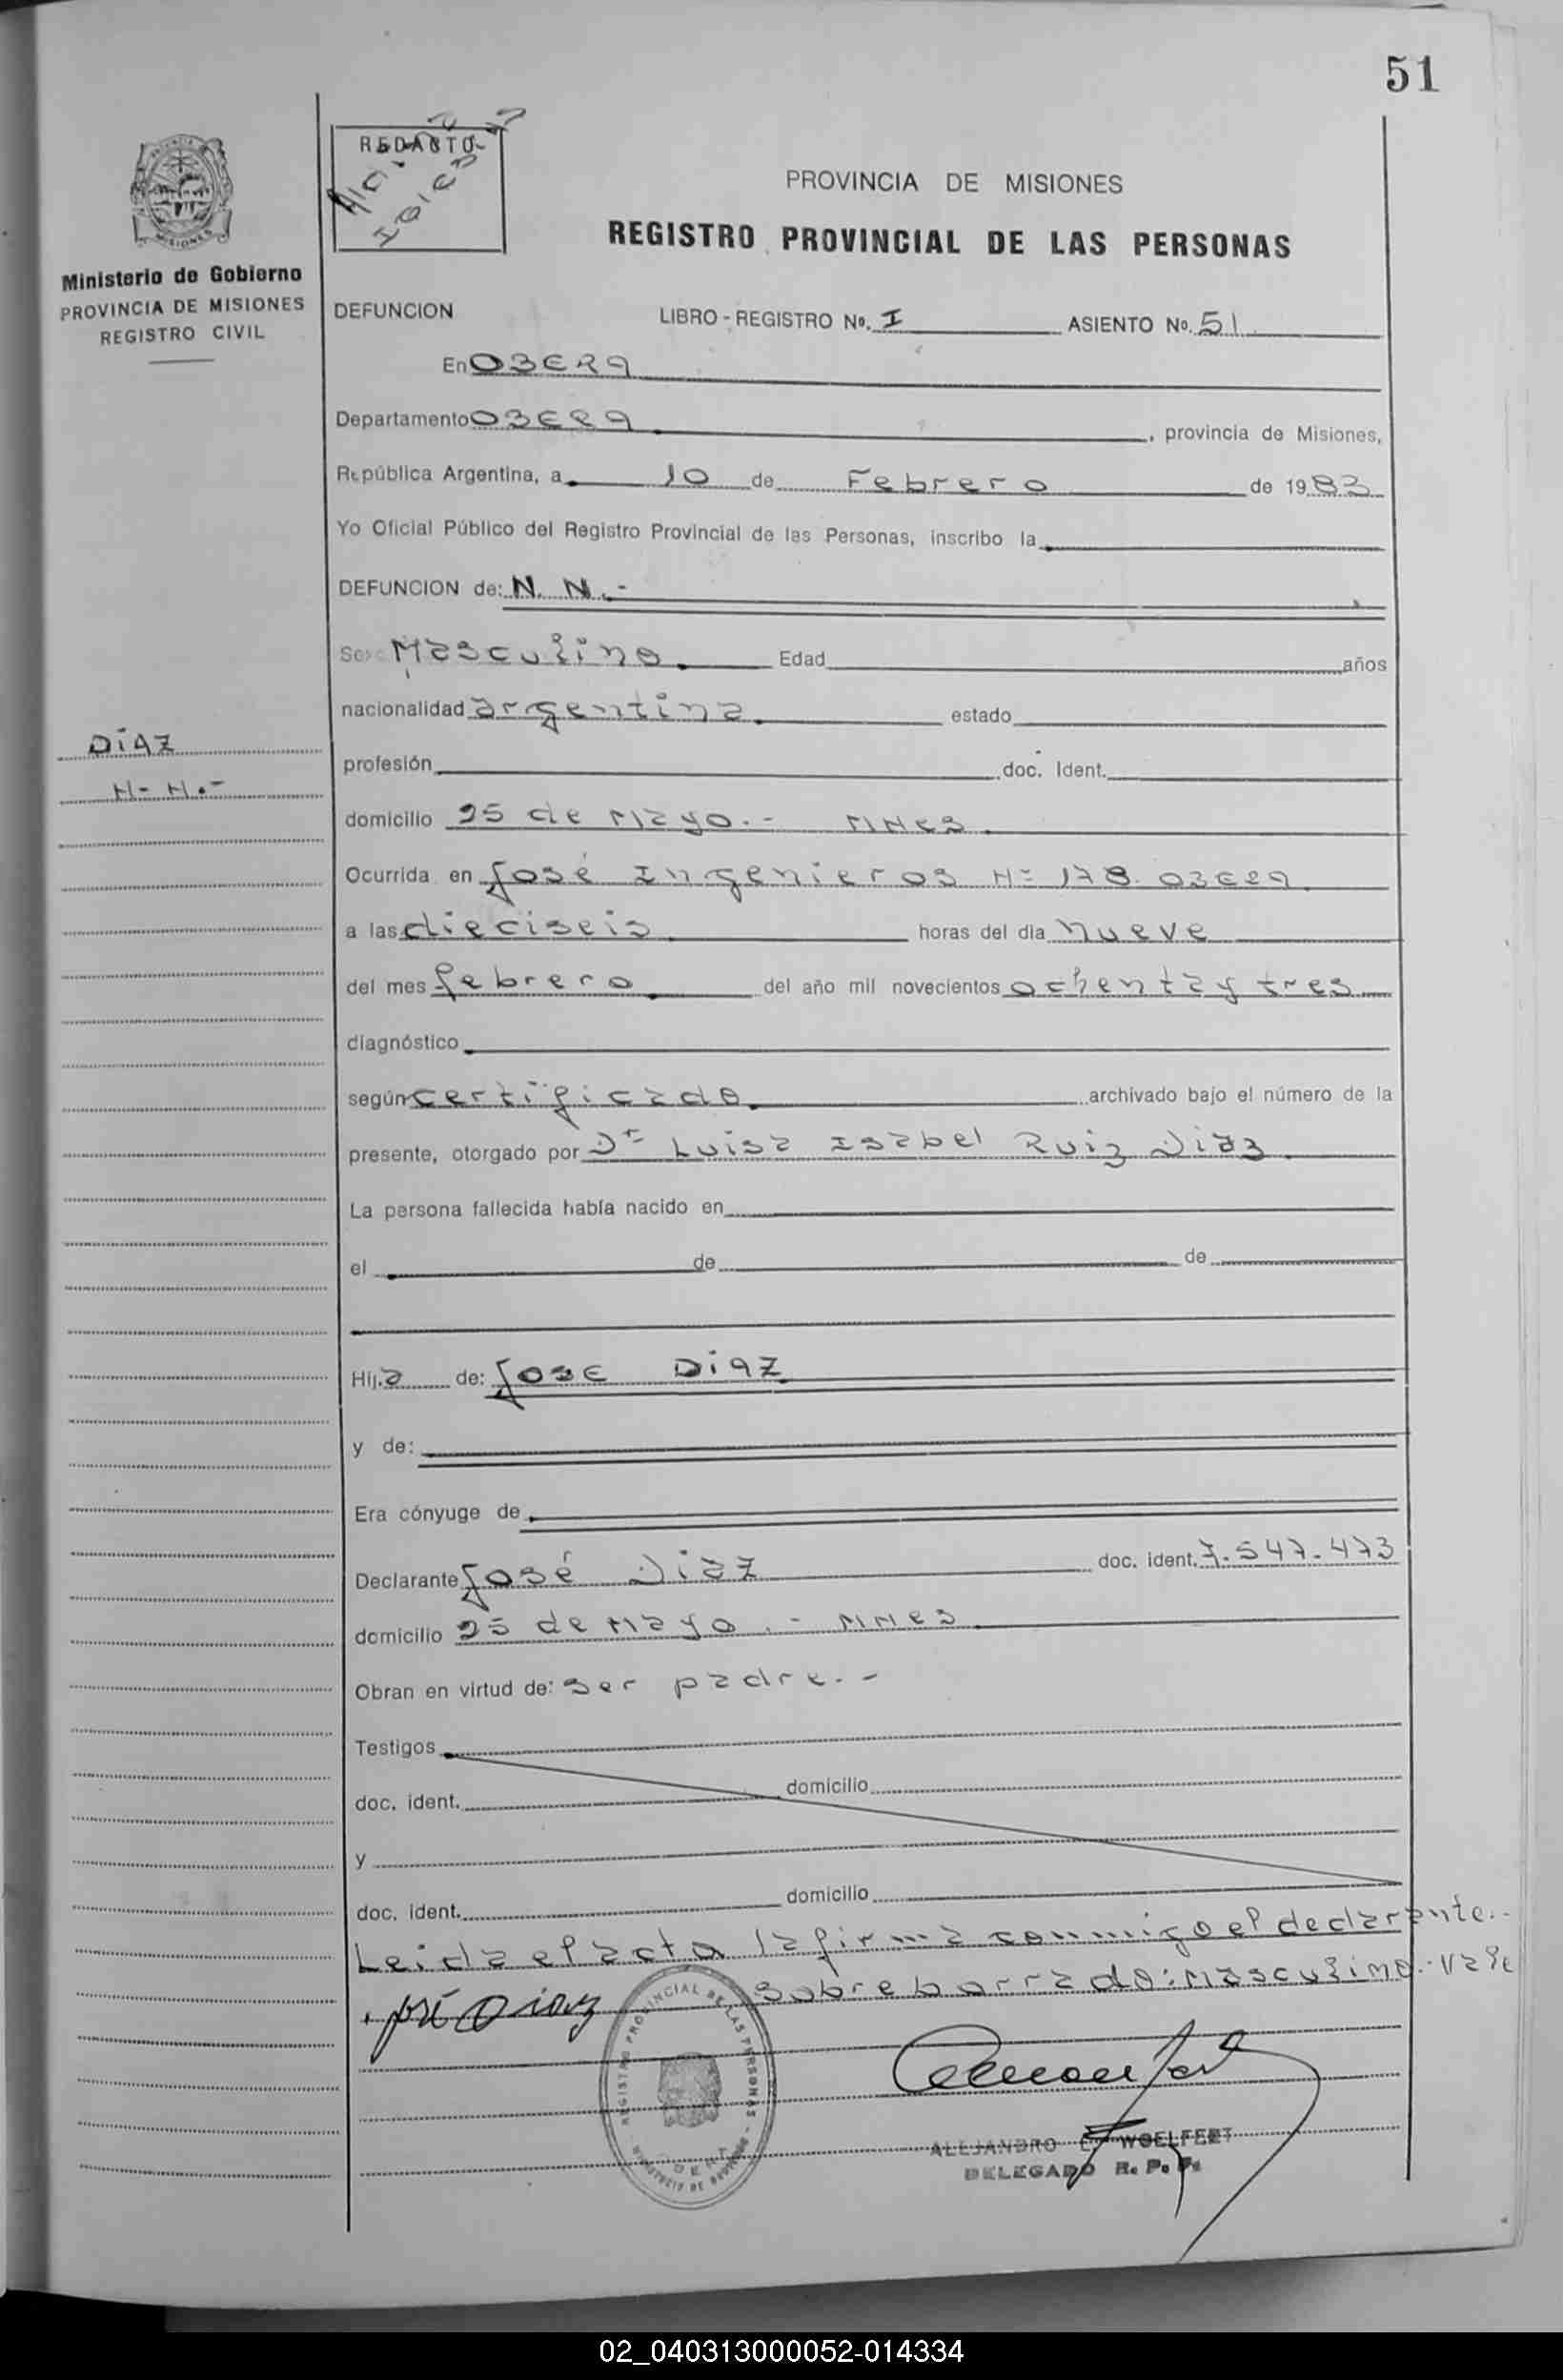 51
REDACTO
PROVINCIA DE MISIONES
REGISTRO PROVINCIAL DE LAS PERSONAS
MISIONES
Ministerio de Gobierno
PROVINCIA DE MISIONES
REGISTRO CIVIL
DEFUNCION LIBRO - REGISTRO Nº. I ASIENTO Nº. 51
En OBERA
Departamento OBERA, provincia de Misiones,
República Argentina, a 10 de Febrero de 1983
Yo Oficial Público del Registro Provincial de las Personas, inscribo la
DEFUNCION de: N. N.-
Sexo Masculino. Edad años
nacionalidad argentina. estado
DIAZ
N- N.-
profesión doc. Ident.
domicilio 25 de Mayo.- MNES.
Ocurrida en José Ingenieros Nº 178. OBERA.
a las dieciseis horas del día nueve
del mes febrero. del año mil novecientos ochenta y tres
diagnóstico
según certificado. archivado bajo el número de la
presente, otorgado por Dra Luisa Isabel Ruiz Diaz.
La persona fallecida había nacido en
el de de
Hij.a de: JOSE DIAZ.
y de:
Era cónyuge de
Declarante José Diaz doc. ident. 7.547.473
domicilio 25 de Mayo.- MNES.
Obran en virtud de: ser padre.-
Testigos
doc. ident. domicilio
y
doc. ident. domicilio
Leida el acta la firma conmigo el declarante.-
Sobre borrado: Masculino.- Vale
José Diaz
REGISTRO PROVINCIAL DE LAS PERSONAS
ALEJANDRO E. WOELFERT
DELEGADO R. P. P.
02_040313000052-014334